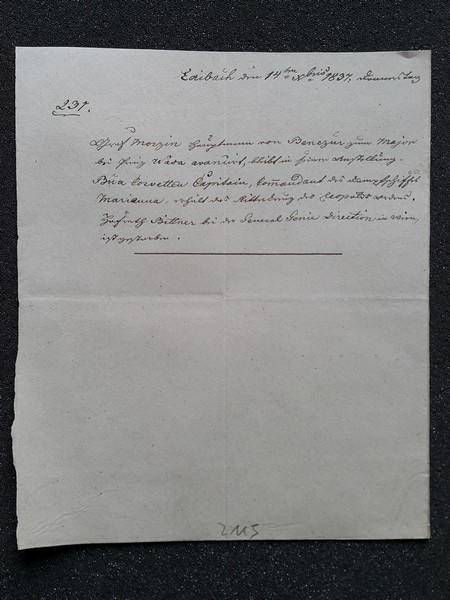 Laibach den 14ten Xbris 1837, Donnerstag
231.
Graf Morzin Hauptmann von Benczur zum Major
bei Prinz Wasa avancirt, bleibt in seiner Anstellung.
Bua Corvetten Capitain, Commandant des Dampfschiffes
Marianna, erhält das Ritterkreuz des Leopolds ordens.
Hofrath Bittner bei der General Genie Direction in Wien,
ist gestorben.
2115